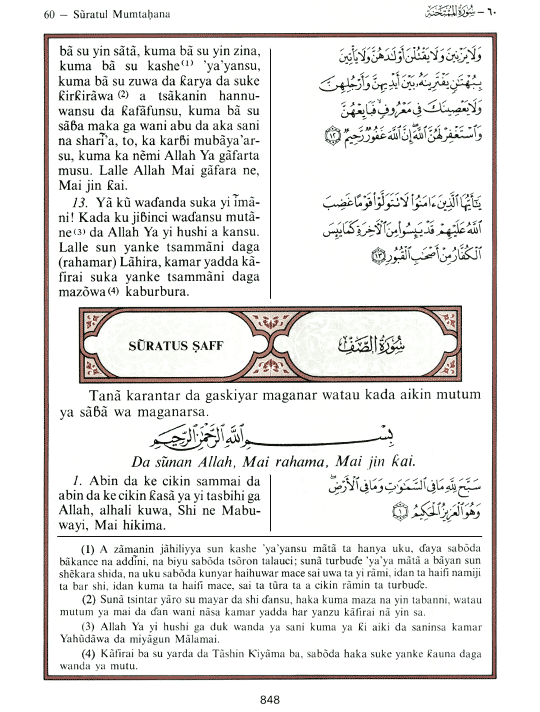 60 – Sūratul Mumtaḥana
٦٠ – سُورَةُ المُمْتَحنَة
bā su yin sātā, kuma bā su yin zina,
kuma bā su kashe⁽¹⁾ 'ya'yansu,
kuma bā su zuwa da ƙarya da suke
ƙirƙirāwa ⁽²⁾ a tsākanin hannu-
wansu da ƙafāfunsu, kuma bā su
sāɓa maka ga wani abu da aka sani
na sharī'a, to, ka karɓi mubāya'ar-
su, kuma ka nēmi Allah Ya gāfarta
musu. Lalle Allah Mai gāfara ne,
Mai jin ƙai.
13. Yā kū waɗanda suka yi īmā-
ni! Kada ku jiɓinci waɗansu mutā-
ne⁽³⁾ da Allah Ya yi hushi a kansu.
Lalle sun yanke tsammāni daga
(rahamar) Lāhira, kamar yadda kā-
firai suka yanke tsammāni daga
mazōwa⁽⁴⁾ kaburbura.
وَلَا يَزْنِينَ وَلَا يَقْتُلْنَ أَوْلَٰدَهُنَّ وَلَا يَأْتِينَ
بِبُهْتَٰنٍ يَفْتَرِينَهُۥ بَيْنَ أَيْدِيهِنَّ وَأَرْجُلِهِنَّ
وَلَا يَعْصِينَكَ فِى مَعْرُوفٍ فَبَايِعْهُنَّ
وَٱسْتَغْفِرْ لَهُنَّ ٱللَّهَ إِنَّ ٱللَّهَ غَفُورٌ رَّحِيمٌ ١٢
يَٰٓأَيُّهَا ٱلَّذِينَ ءَامَنُوا۟ لَا تَتَوَلَّوْا۟ قَوْمًا غَضِبَ
ٱللَّهُ عَلَيْهِمْ قَدْ يَئِسُوا۟ مِنَ ٱلْءَاخِرَةِ كَمَا يَئِسَ
ٱلْكُفَّارُ مِنْ أَصْحَٰبِ ٱلْقُبُورِ ١٣
SŪRATUS ṢAFF
سُورَةُ الصَّفّ
Tanā karantar da gaskiyar maganar watau kada aikin mutum
ya sāɓā wa maganarsa.
بِسْمِ اللَّهِ الرَّحْمَٰنِ الرَّحِيمِ
Da sūnan Allah, Mai rahama, Mai jin ƙai.
1. Abin da ke cikin sammai da
abin da ke cikin ƙasā ya yi tasbihi ga
Allah, alhali kuwa, Shi ne Mabu-
wayi, Mai hikima.
سَبَّحَ لِلَّهِ مَا فِى ٱلسَّمَٰوَٰتِ وَمَا فِى ٱلْأَرْضِ
وَهُوَ ٱلْعَزِيزُ ٱلْحَكِيمُ ١
(1) A zāmanin jāhiliyya sun kashe 'ya'yansu mātā ta hanya uku, ɗaya sabōda
bākance na addīni, na biyu sabōda tsōron talauci; sunā turbuɗe 'ya'ya mātā a bāyan sun
shēkara shida, na uku sabōda kunyar haihuwar mace sai uwa ta yi rāmi, idan ta haifi namiji
ta bar shi, idan kuma ta haifi mace, sai ta tūra ta a cikin rāmin ta turbuɗe.
(2) Sunā tsintar yāro su mayar da shi ɗansu, haka kuma maza na yin tabanni, watau
mutum ya mai da ɗan wani nāsa kamar yadda har yanzu kāfirai nā yin sa.
(3) Allah Ya yi hushi ga duk wanda ya sani kuma ya ƙi aiki da saninsa kamar
Yahūdāwa da miyāgun Mālamai.
(4) Kāfirai ba su yarda da Tāshin Ƙiyāma ba, sabōda haka suke yanke ƙauna daga
wanda ya mutu.
848